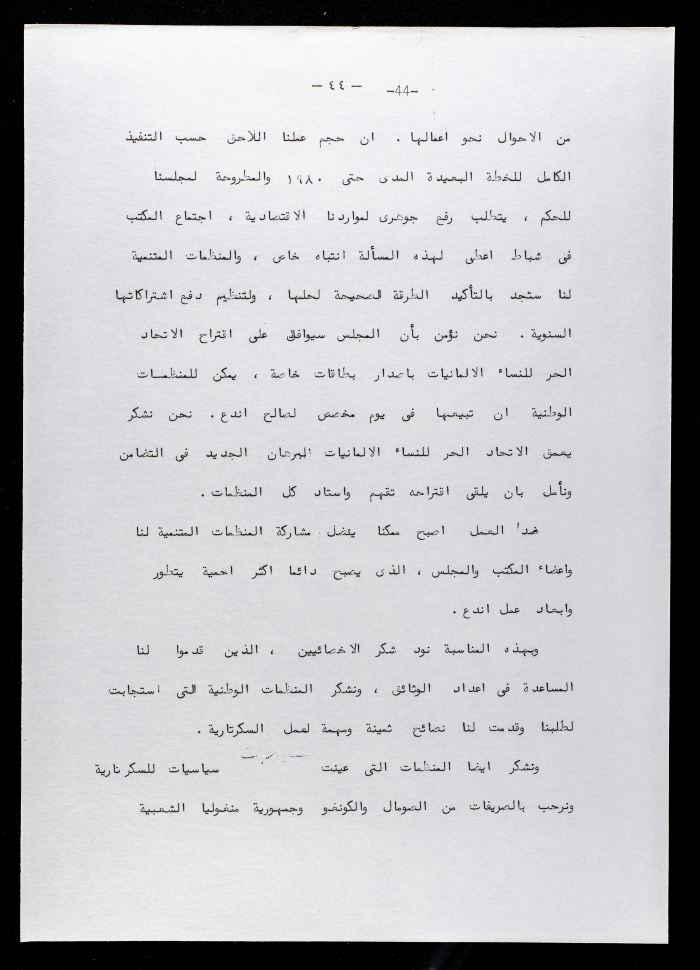 — ٤٤ — -44-
من الاحوال نحو اعمالها . ان حجم عملنا اللاحق حسب التنفيذ
الكامل للخطة البعيدة المدى حتى ١٩٨٠ والمطروحة لمجلسنا
للحكم ، يتطلب رفع جوهرى لمواردنا الاقتصادية ، اجتماع المكتب
فى شباط اعطى لهذه المسألة انتباه خاص ، والمنظمات المتنمية
لنا ستجد بالتأكيد الطرقة الصحيحة لحلها ، ولتنظيم دفع اشتراكاتها
السنوية . نحن نؤمن بأن المجلس سيوافق على اقتراح الاتحاد
الحر للنساء الالمانيات باصدار بطاقات خاصة ، يمكن للمنظمات
الوطنية ان تبيعها فى يوم مخصص لصالح اندع . نحن نشكر
بعمق الاتحاد الحر للنساء الالمانيات البرهان الجديد فى التضامن
ونأمل بان يلقى اقتراحه تفهم واسناد كل المنظمات .
هذا العمل اصبح ممكنا بفضل مشاركة المنظمات المتنمية لنا
واعضاء المكتب والمجلس ، الذى يصبح دائما اكثر اهمية بتطور
وابعاد عمل اندع .
وبهذه المناسبة نود شكر الاخصائيين ، الذين قدموا لنا
المساعدة فى اعداد الوثائق ، ونشكر المنظمات الوطنية التى استجابت
لطلبنا وقدمت لنا نصائح ثمينة ومهمة لعمل السكرتارية .
ونشكر ايضا المنظمات التى عينت سياسيات للسكرتارية
ونرحب بالعريفات من الصومال والكونغو وجمهورية منغوليا الشعبية